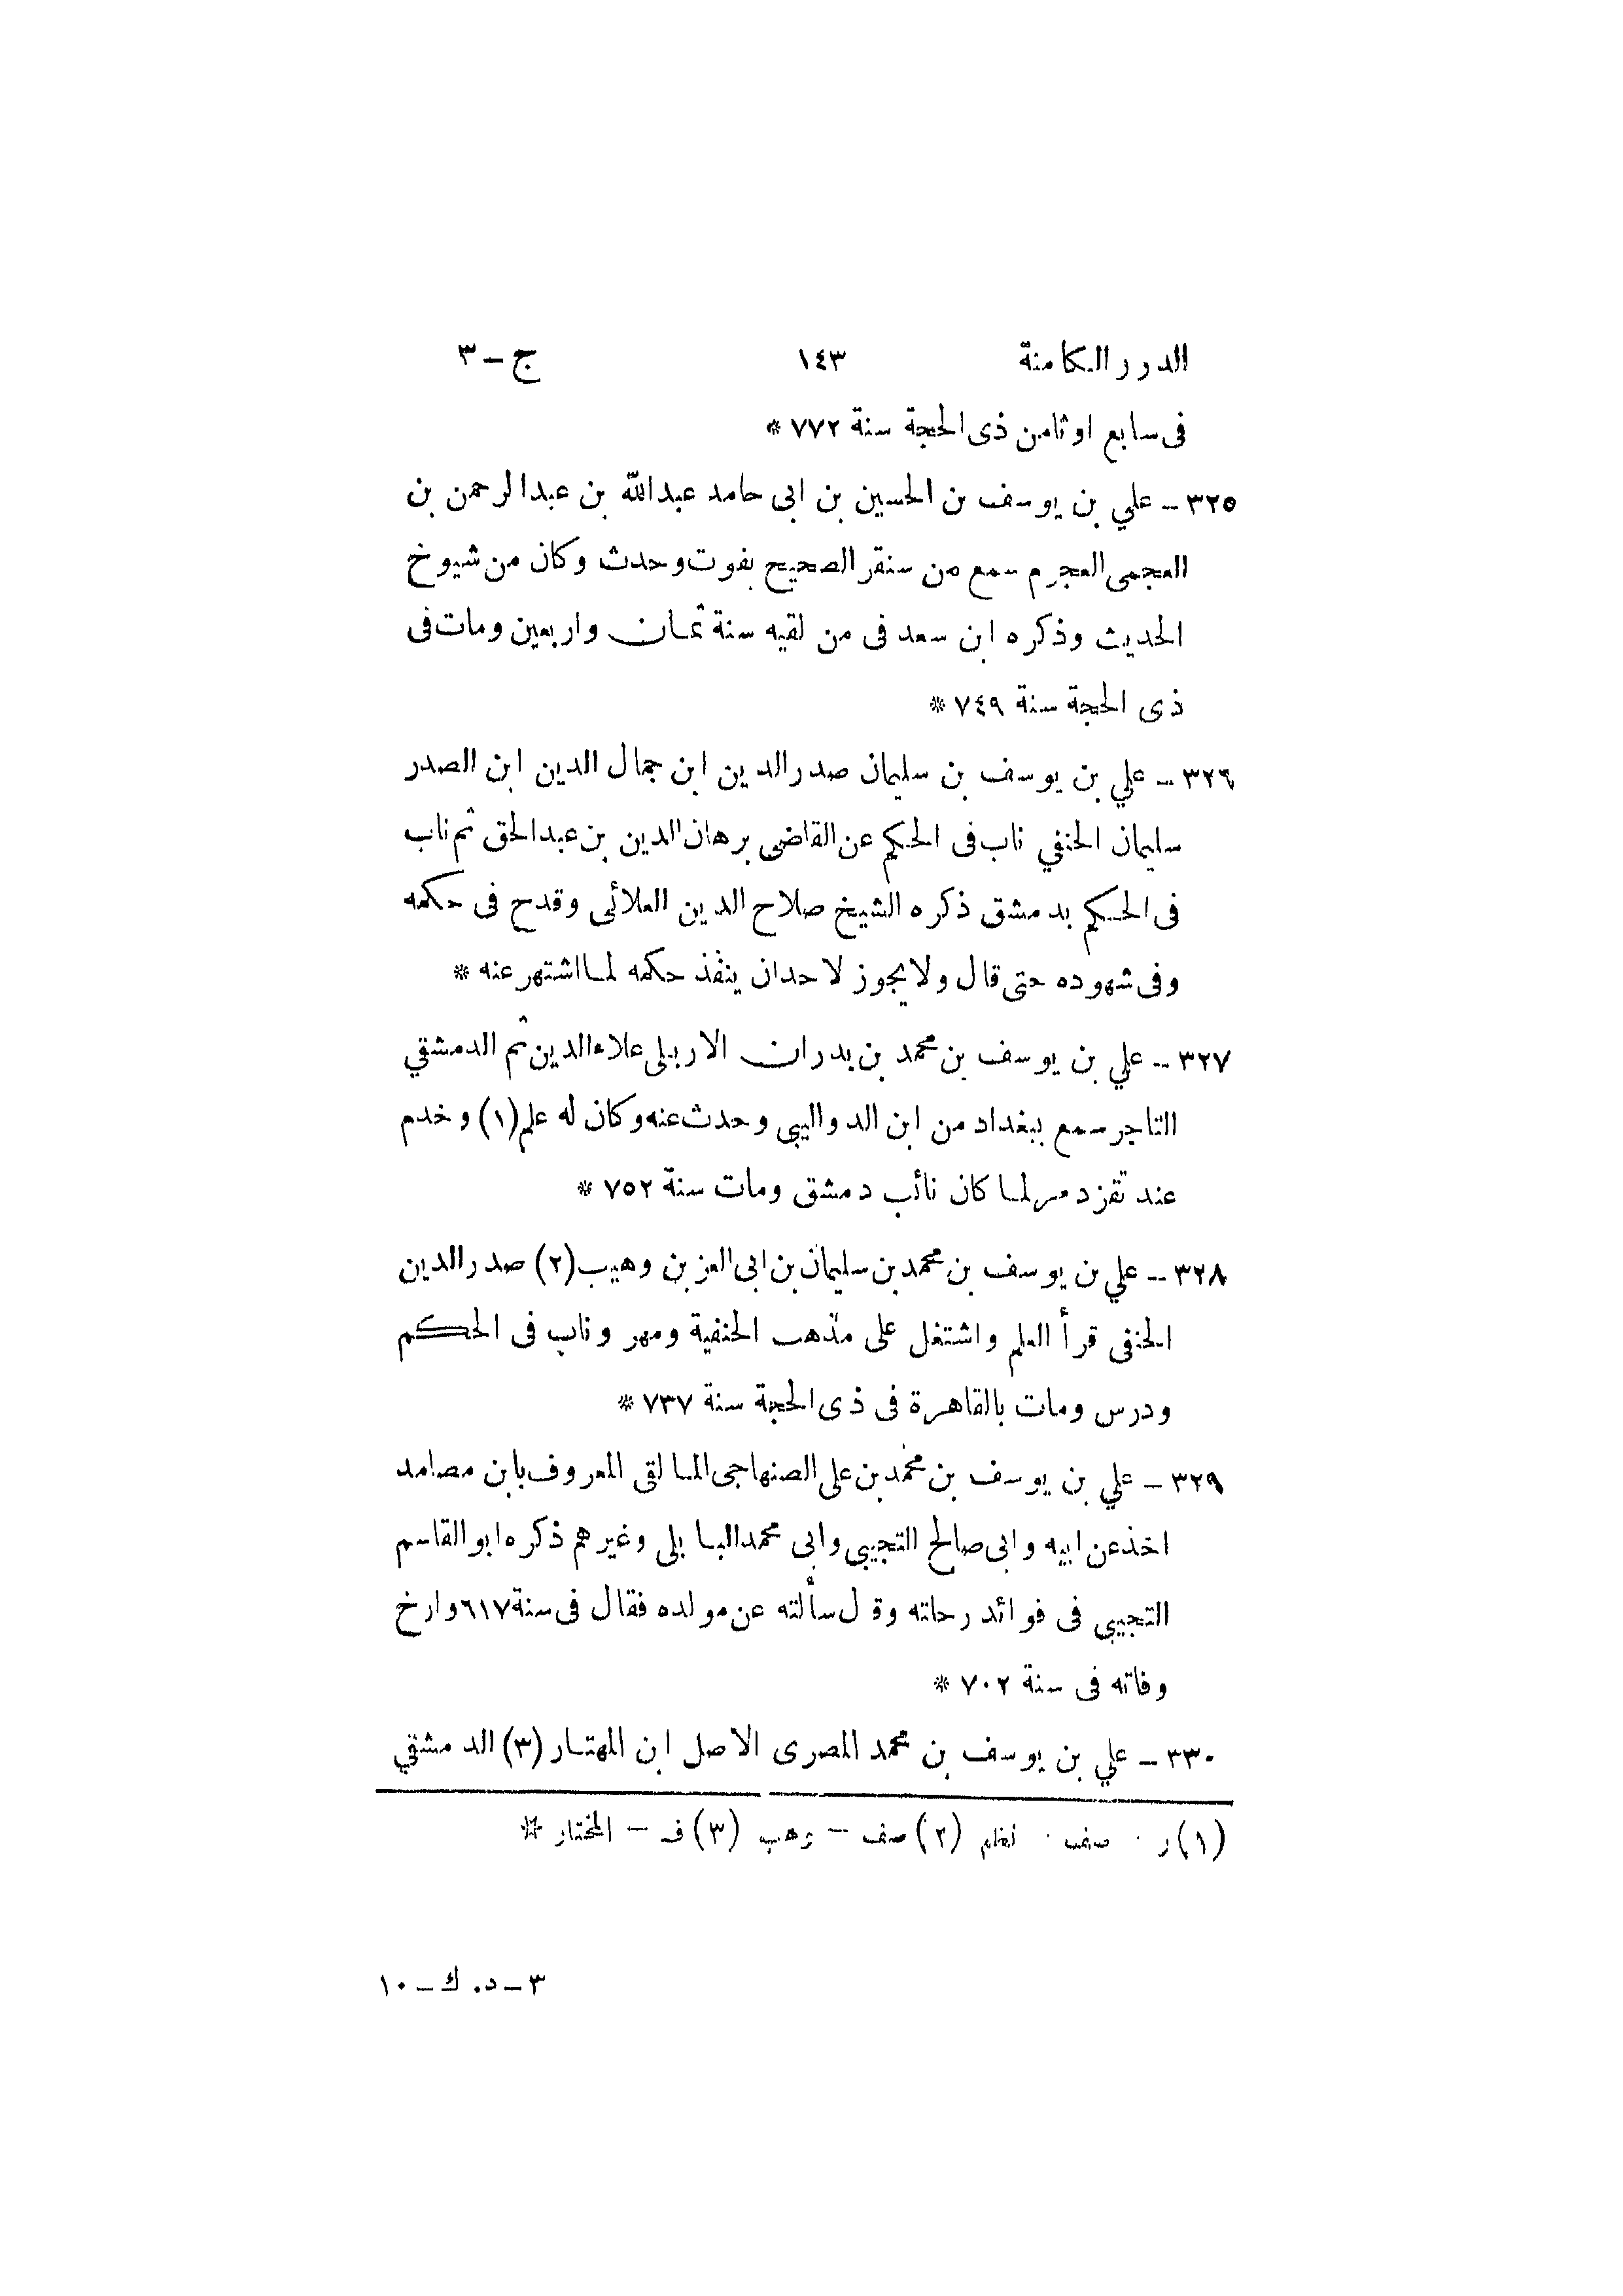 الدرر الكامنة ١٤٣ ج – ٣
فى سابع او ثامن ذى الحجة سنة ٧٧٢ *
٣٢٥ – علي بن يوسف بن الحسين بن ابى حامد عبدالله بن عبدالرحمن بن
العجمى العجرم سمع من سنقر الصحيح بفوت وحدث وكان من شيوخ
الحديث وذكره ابن سعد فى من لقيه سنة ثمان واربعين ومات فى
ذى الحجة سنة ٧٤٩ *
٣٢٦ – علي بن يوسف بن سليمان صدرالدين ابن جمال الدين ابن الصدر
سليمان الحنفي ناب فى الحكم عن القاضى برهان الدين بن عبدالحق ثم ناب
فى الحكم بدمشق ذكره الشيخ صلاح الدين العلائى وقدح فى حكمه
وفى شهوده حتى قال ولا يجوز لاحدان ينفذ حكمه لما اشتهر عنه *
٣٢٧ – علي بن يوسف بن محمد بن بدران الاربلى علاءالدين ثم الدمشقي
التاجر سمع ببغداد من ابن الدواليبى وحدث عنه وكان له علم (١) وخدم
عند تقزدمر لما كان نائب دمشق ومات سنة ٧٥٢ *
٣٢٨ – علي بن يوسف بن محمد بن سليمان بن ابى العز بن وهيب (٢) صدرالدين
الحنفى قرأ العلم واشتغل على مذهب الحنفية ومهر وناب فى الحكم
ودرس ومات بالقاهرة فى ذى الحجة سنة ٧٣٧ *
٣٢٩ – علي بن يوسف بن محمد بن على الصنهاجى المالقى المعروف بابن مصامد
اخذ عن ابيه وابى صالح التجيبى وابى محمد البابلى وغيرهم ذكره ابو القاسم
التجيبى فى فوائد رحلته وقال سألته عن مولده فقال فى سنة ٦١٧ وارخ
وفاته فى سنة ٧٠٢ *
٣٣٠ – علي بن يوسف بن محمد المصرى الاصل ابن المهتار (٣) الدمشقي
(١) ر . صف . نظم (٢) صف – وهب (٣) ف – المختار *
٣ – د. ك – ١٠